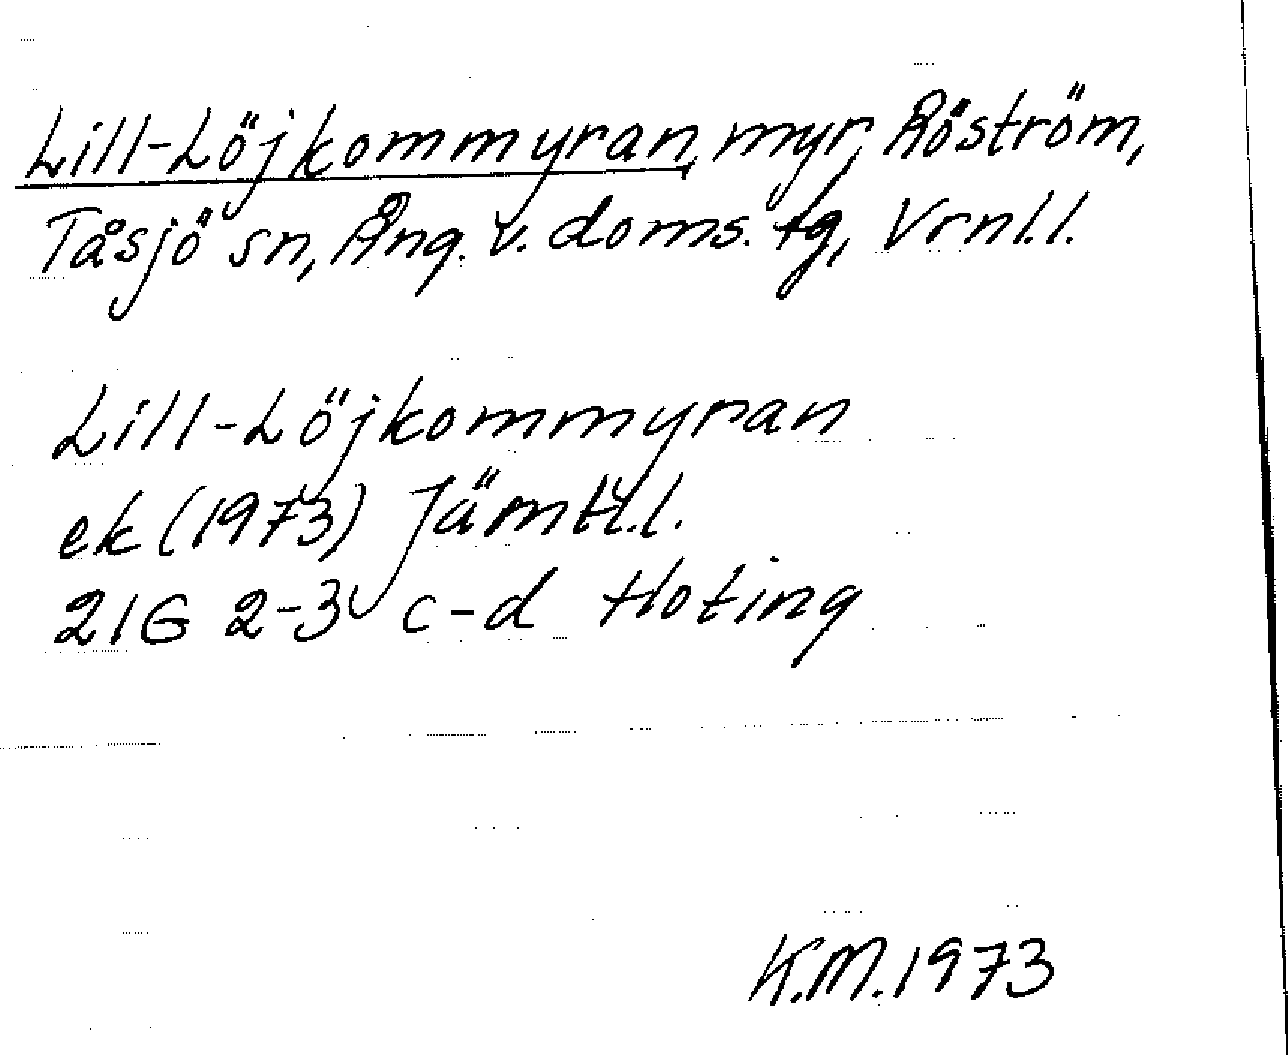 Lill-Löjkommyran, myr, Röström,
Tåsjö sn, Ång. v. doms. tg, Vrnl.l.
Lill-Löjkommyran
ek (1973) Jämtl.l.
21G 2-3 c-d Hoting
K.M. 1973